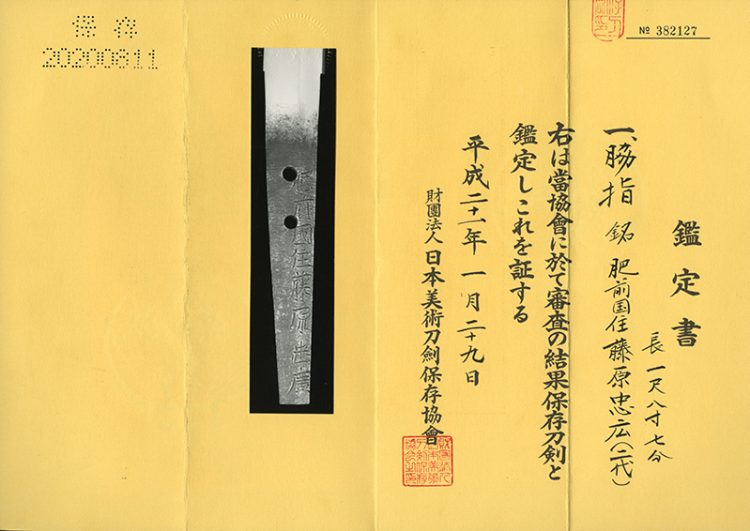 № 382127
鑑定書
長 一尺八寸七分
一、脇指 銘 肥前国住藤原忠広(二代)
右は當協會に於て審査の結果保存刀剣と
鑑定しこれを証する
平成二十一年一月二十九日
財團法人日本美術刀劍保存協會
肥前國住藤原忠廣
保存
20200811